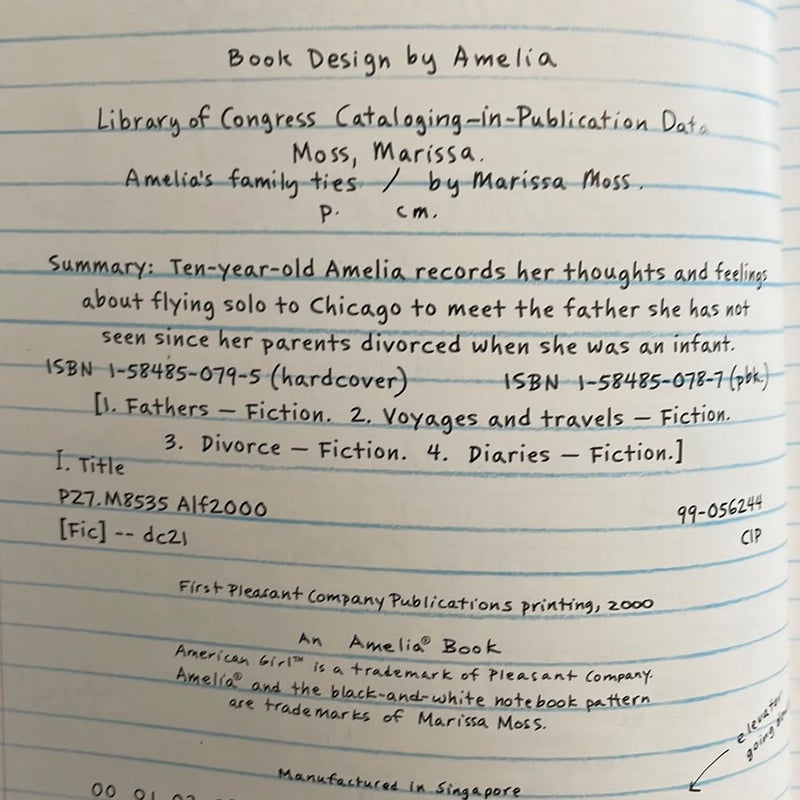 Book Design by Amelia
Library of Congress Cataloging-in-Publication Data
Moss, Marissa.
Amelia's family ties / by Marissa Moss.
p. cm.
Summary: Ten-year-old Amelia records her thoughts and feelings
about flying solo to Chicago to meet the father she has not
seen since her parents divorced when she was an infant.
ISBN 1-58485-079-5 (hardcover) ISBN 1-58485-078-7 (pbk.)
[1. Fathers — Fiction. 2. Voyages and travels — Fiction.
3. Divorce — Fiction. 4. Diaries — Fiction.]
I. Title
PZ7.M8535 Alf2000 99-056244
[Fic] -- dc21 CIP
First Pleasant Company Publications printing, 2000
An Amelia® Book
American Girl™ is a trademark of Pleasant Company.
Amelia® and the black-and-white notebook pattern
are trademarks of Marissa Moss.
elevator
going
Manufactured in Singapore
00 01 02